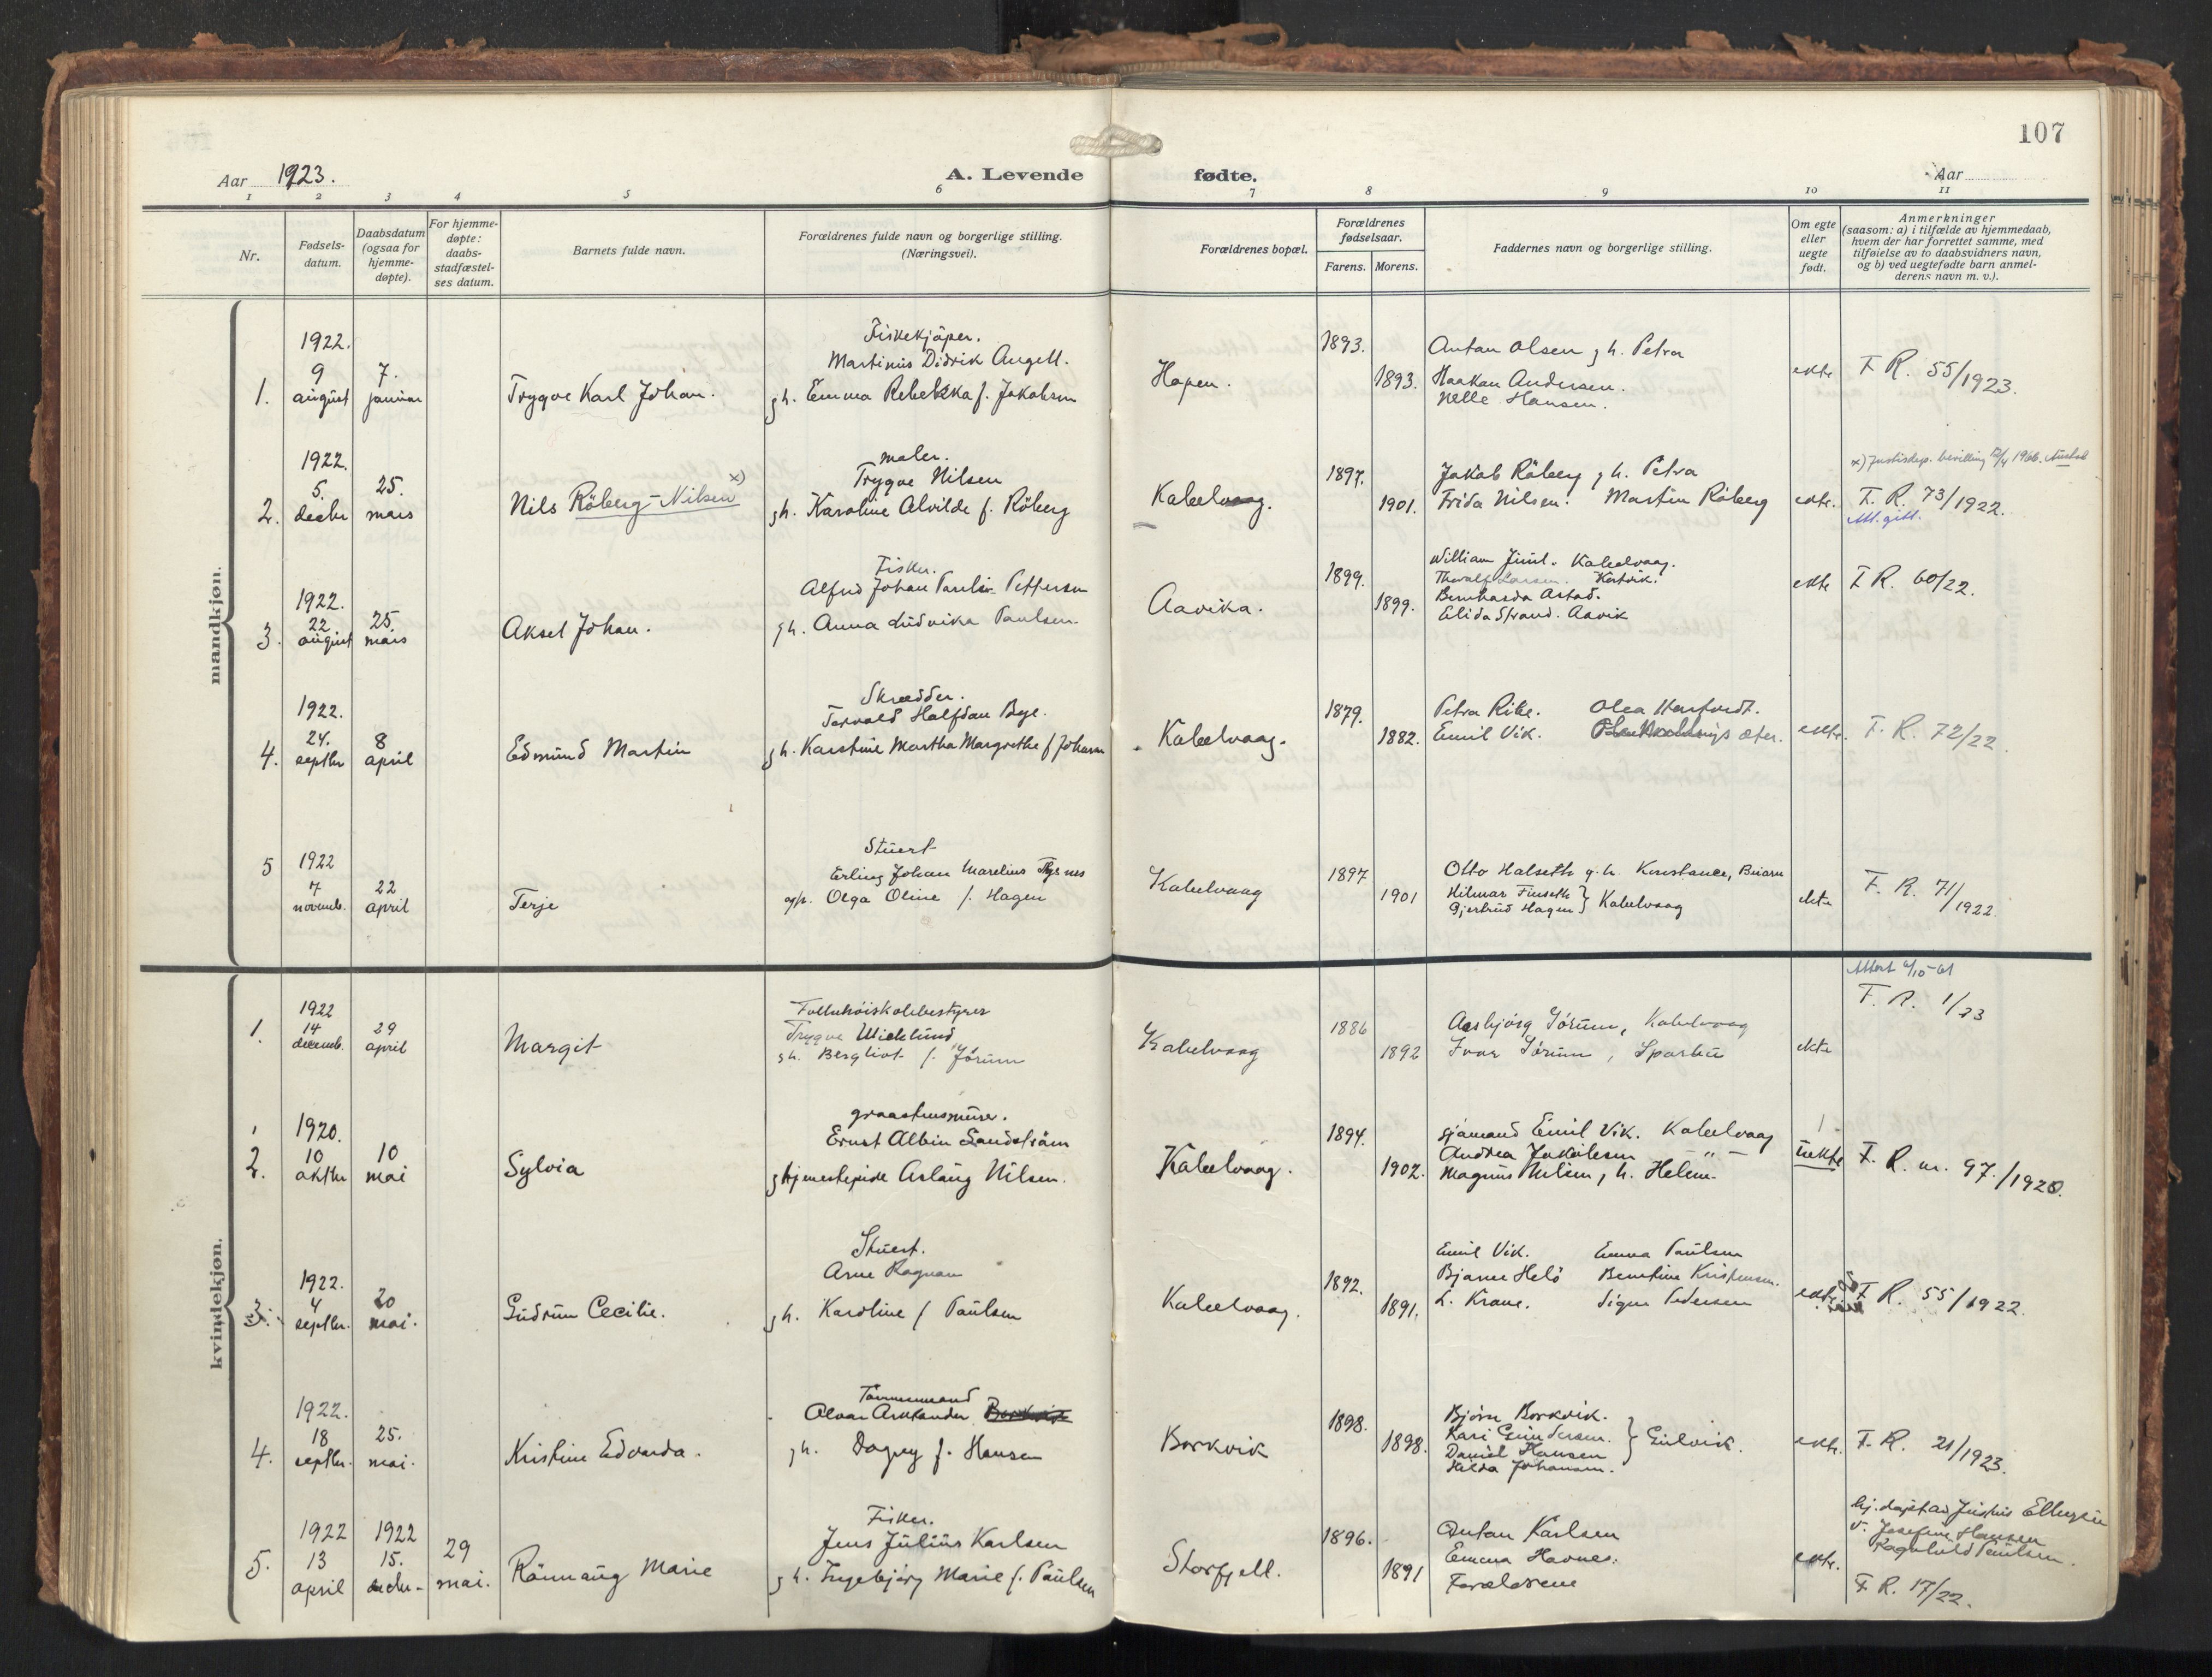 107
Aar 1923.
A. Levende fødte.
Aar
1 2 3 4 5 6 7 8 9 10 11
Nr.
Fødsels-
datum.
Daabsdatum
(ogsaa for
hjemme-
døpte).
For hjemme-
døpte:
daabs-
stadfæstel-
ses datum.
Barnets fulde navn.
Forældrenes fulde navn og borgerlige stilling.
(Næringsvei).
Forældrenes bopæl.
Forældrenes
fødselsaar.
Farens. Morens.
Faddernes navn og borgerlige stilling.
Om egte
eller
uegte
født.
Anmerkninger
(saasom: a) i tilfælde av hjemmedaab,
hvem der har forrettet samme, med
tilføielse av to daabsvidners navn,
og b) ved uegtefødte barn anmel-
derens navn m. v.).
mandkjøn.
1.
1922.
9
august
7.
januar
Trygve Karl Johan.
Fiskekjøper.
Martinus Didrik Angell.
g h. Emma Rebekka f. Jakobsen
Hopen.
1893.
1893.
Anton Olsen g h. Petra
Haakon Andersen.
Nelle Hansen.
ekte
F. R. 55/1923.
2.
1922.
5.
decbr
25.
mars
Nils Röberg-Nilsen x)
maler.
Trygve Nilsen
g h. Karoline Alvilde f. Röberg
Kabelvaag.
1897.
1901.
Jakob Röberg g h. Petra
Frida Nilsen. Martin Röberg
ekte.
x) Justisdep. bevilling 12/4 1966.
F. R. 73/1922.
Att. gitt.
3.
1922.
22
august
25
mars
Aksel Johan.
Fisker.
Alfred Johan Paulin Pettersen
g h. Anna Ludvika Paulsen
Aavika.
1899.
1899.
William Juul. Kabelvaag.
Thoralf Larsen.
Bernharda Astad.
Elida Strand. Aavik
ekte
F. R. 60/22.
4.
1922.
24.
septbr
8
april
Edmund Martin
Skrædder.
Torvald Halfdan Bye.
g h. Karstine Martha Margrethe f Johansen
Kabelvaag.
1879.
1882.
Petra Rike. Olea
Emil Vik.
ekte.
F. R. 72/22.
5
1922
7
novemb.
22
april
Terje
Stuert
Erling Johan Marelius
g h. Olga Oline f. Hagen
Kabelvaag
1897
1901
Otto Halseth g. h. Konstance,
Hilmar Finseth
Gjertrud Hagen } Kabelvaag
ekte
F. R. 71/1922.
kvindekjøn.
1.
1922
14
decemb.
29
april
Margit
Folkehöiskolebestyrer
Trygve Wicklund
g h. Bergliot f. Jörum
Kabelvaag
1886
1892
Aasbjörg Jörum, Kabelvaag
Ivar Jörum, Sparbu
ekte
Attest 6/10-61
F. R. 1/23
2.
1920.
10
oktbr
10
mai
Sylvia
graastensmurer.
Ernst Albin Sandström
g tjenestepike Aslaug Nilsen.
Kabelvaag.
1894.
1902.
sjømand Emil Vik. Kabelvaag
Andrea Jakobsen — " —
Magnus Nilsen, h. Helene
uekte
F. R. nr. 97./1920.
3.
1922.
4
septbr.
20
mai.
Gudrun Cecilie.
Stuert.
Arne Rognan
g h. Karoline f Paulsen
Kabelvaag.
1892.
1891.
Emil Vik. Emma Paulsen
Bjarne Helö Benetine Kristensen.
L. Krane. Signe Pedersen
ekte.
F. R. 55/1922.
4.
1922.
18
septbr.
25.
mai.
Kristine Edvarda.
Tömmermand
g h. Dagny f. Hansen
Borkvik
1898.
1898.
Björn Borkvik.
Kari Gundersen.
Daniel Hansen
Hilda Johansen. } Gulvik.
ekte.
F. R. 21/1923.
5.
1922
13
april
1922
15.
decbr-
29
mai.
Rönnaug Marie
Fisker.
Jens Julius Karlsen
g h. Ingebjørg Marie f. Paulsen
Storfjell.
1896.
1891
Anton Karlsen
Emma Havnes.
Forældrene
ekte.
hj. döpt av Justus Ellingsen
v. Josefine Hansen
Ragnhild Paulsen.
F. R. 17/22.